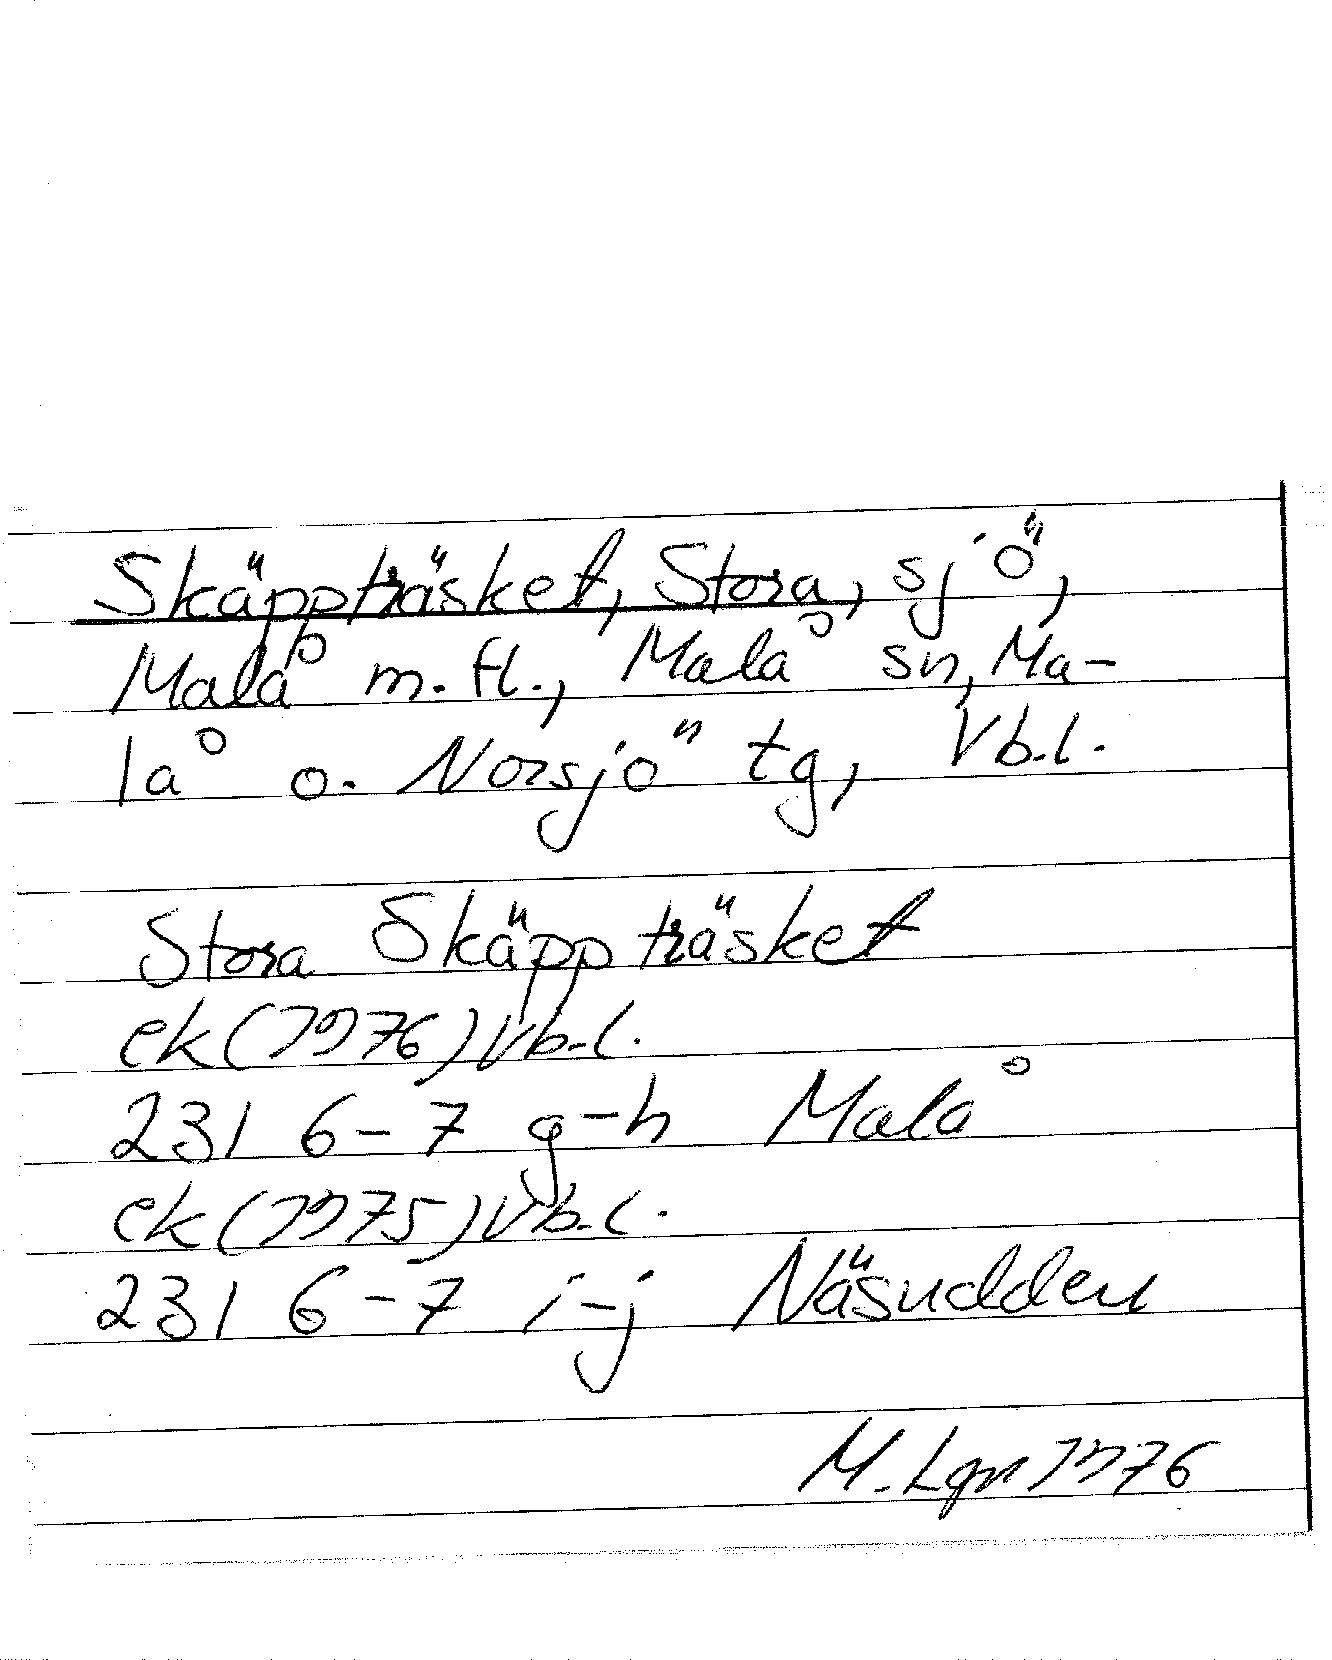 Skäppträsket, Stora, sjö,
Malå m.fl., Malå sn, Ma-
lå o. Norsjö tg, Vb.l.
Stora Skäppträsket
ek(1976)Vb.l.
231 6-7 g-h Malå
ek(1975)Vb.l.
231 6-7 i-j Näsudden
M. Lgn 1976